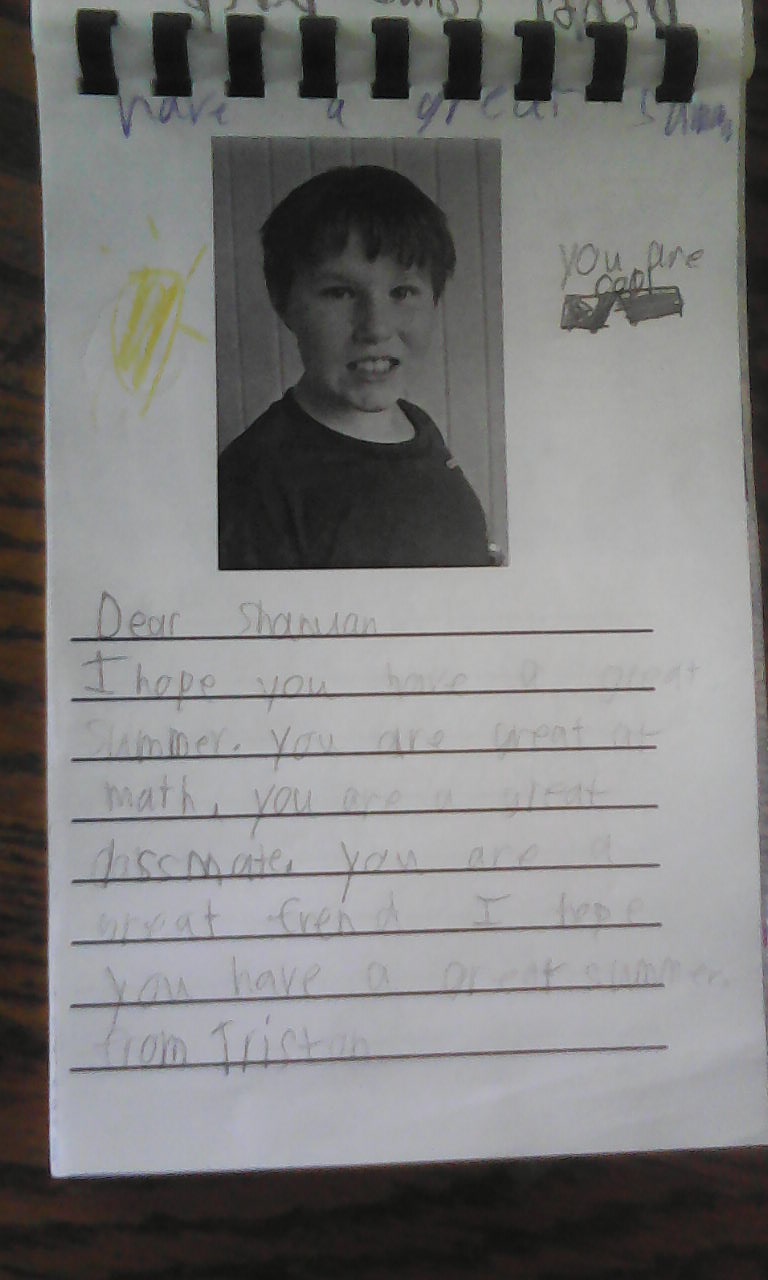 have a great
you are
Dear Shanuan
I hope you have a great
summer. you are great at
math, you are a great
classmate. you are a
great frend I hope
you have a great summer.
from Tristan